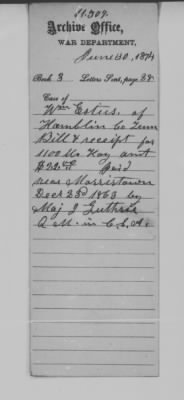 Archive Office,
WAR DEPARTMENT,
June 30, 1874
Book 3 Letters Sent, page
Case of
Wm Estus, of
Hamblin Co Tenn
Bill & receipt for
1100 lbs Hay amt
Paid
near Morristown
Decr 23d 1863 by
Maj J Guthrie
Q. M. in C.S.A.